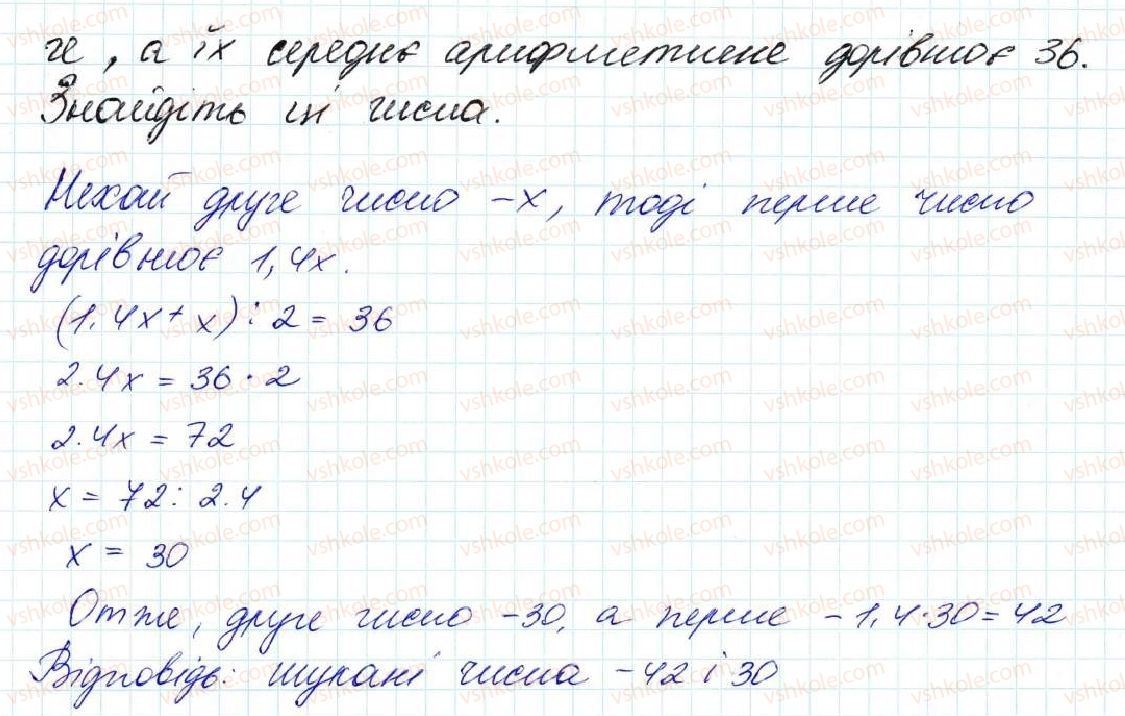 ге, а їх середнє арифметичне дорівнює 36.
Знайдіть ці числа.
Нехай друге число -x, тоді перше число
дорівнює 1,4x.
(1.4x + x) : 2 = 36
2.4x = 36 · 2
2.4x = 72
x = 72 : 2.4
x = 30
Отже, друге число -30, а перше - 1,4·30 = 42
Відповідь: шукані числа - 42 і 30